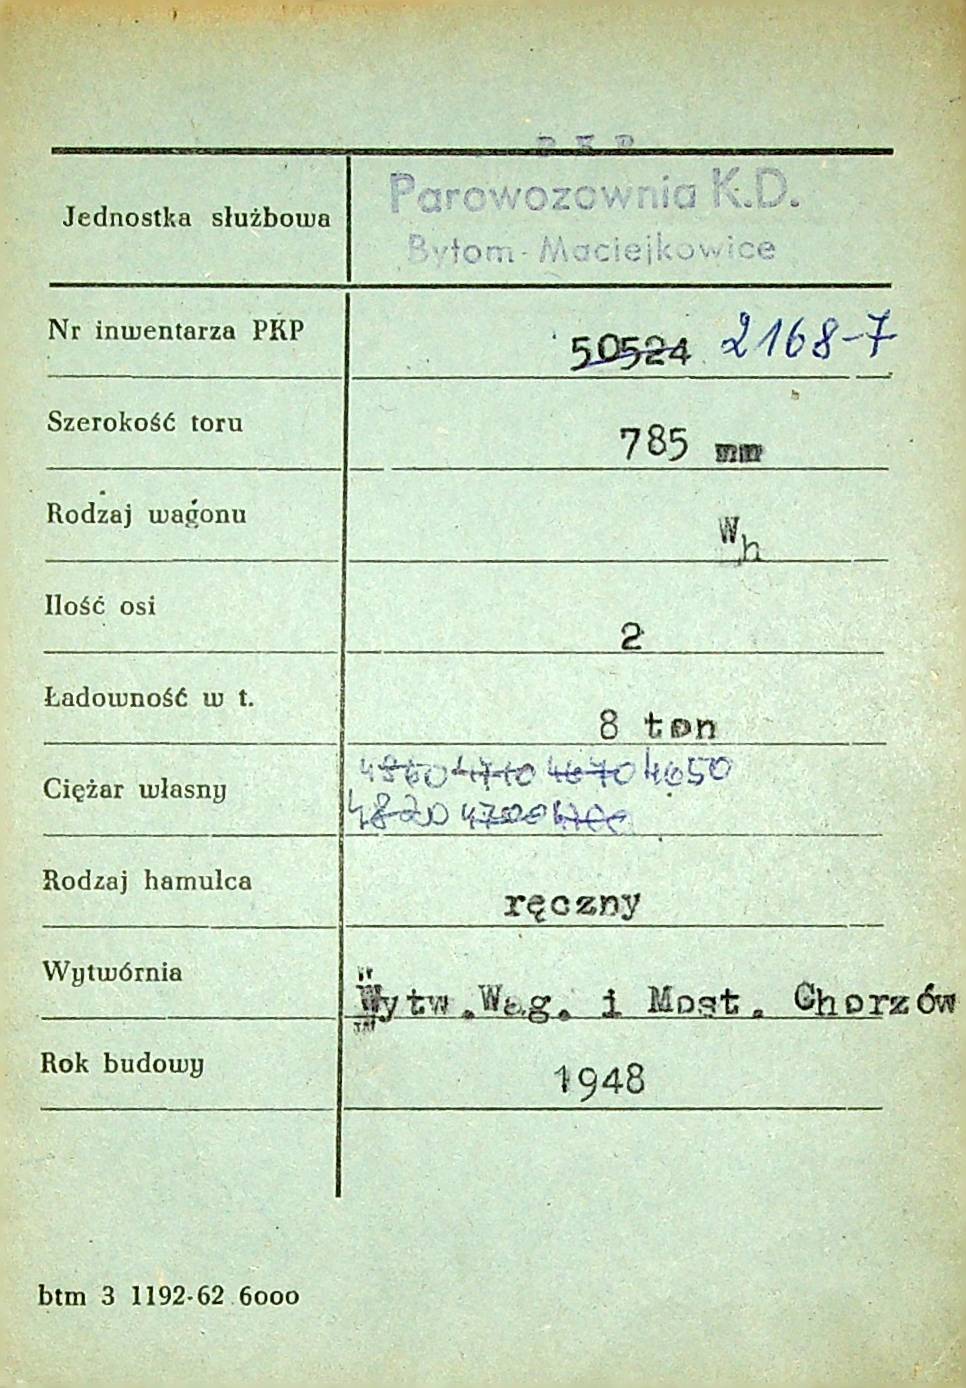 P K P
Parowozownia K.D.
Jednostka służbowa
Bytom-Maciejkowice
Nr inwentarza PKP 50524 2168-7
Szerokość toru 785 mm
Rodzaj wagonu Wh
Ilość osi 2
Ładowność w t. 8 ton
4860 4710 4670 4650
Ciężar własny
4820 4700 4700
Rodzaj hamulca ręczny
Wytwórnia Wytw.Wag. i Most. Chorzów
Rok budowy 1948
btm 3 1192-62 6000